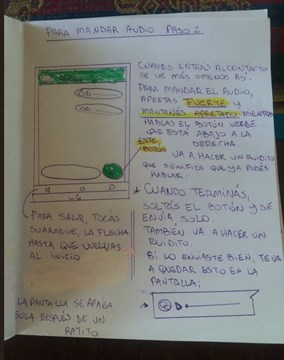 PARA MANDAR AUDIO PASO 2
CUANDO ENTRAS AL CONTACTO
SE VE MÁS O MENOS ASÍ.
PARA MANDAR EL AUDIO,
APRETAS FUERTE Y
MANTENÉS APRETADO MIENTRAS
HABLAS EL BOTÓN VERDE
QUE ESTÁ ABAJO A LA
DERECHA.
ESTE
BOTÓN
VA A HACER UN RUIDITO
QUE SIGNIFICA QUE YA PODÉS
HABLAR.
CUANDO TERMINÁS,
SOLTÁS EL BOTÓN Y SE
ENVÍA SOLO.
TAMBIÉN VA A HACER UN
RUIDITO.
SI LO ENVIASTE BIEN, TE VA
A QUEDAR ESTO EN LA
PANTALLA:
PARA SALIR, TOCÁS
SUAAAVE, LA FLECHA
HASTA QUE VUELVAS
AL INICIO
LA PANTALLA SE APAGA
SOLA DESPUÉS DE UN
RATITO